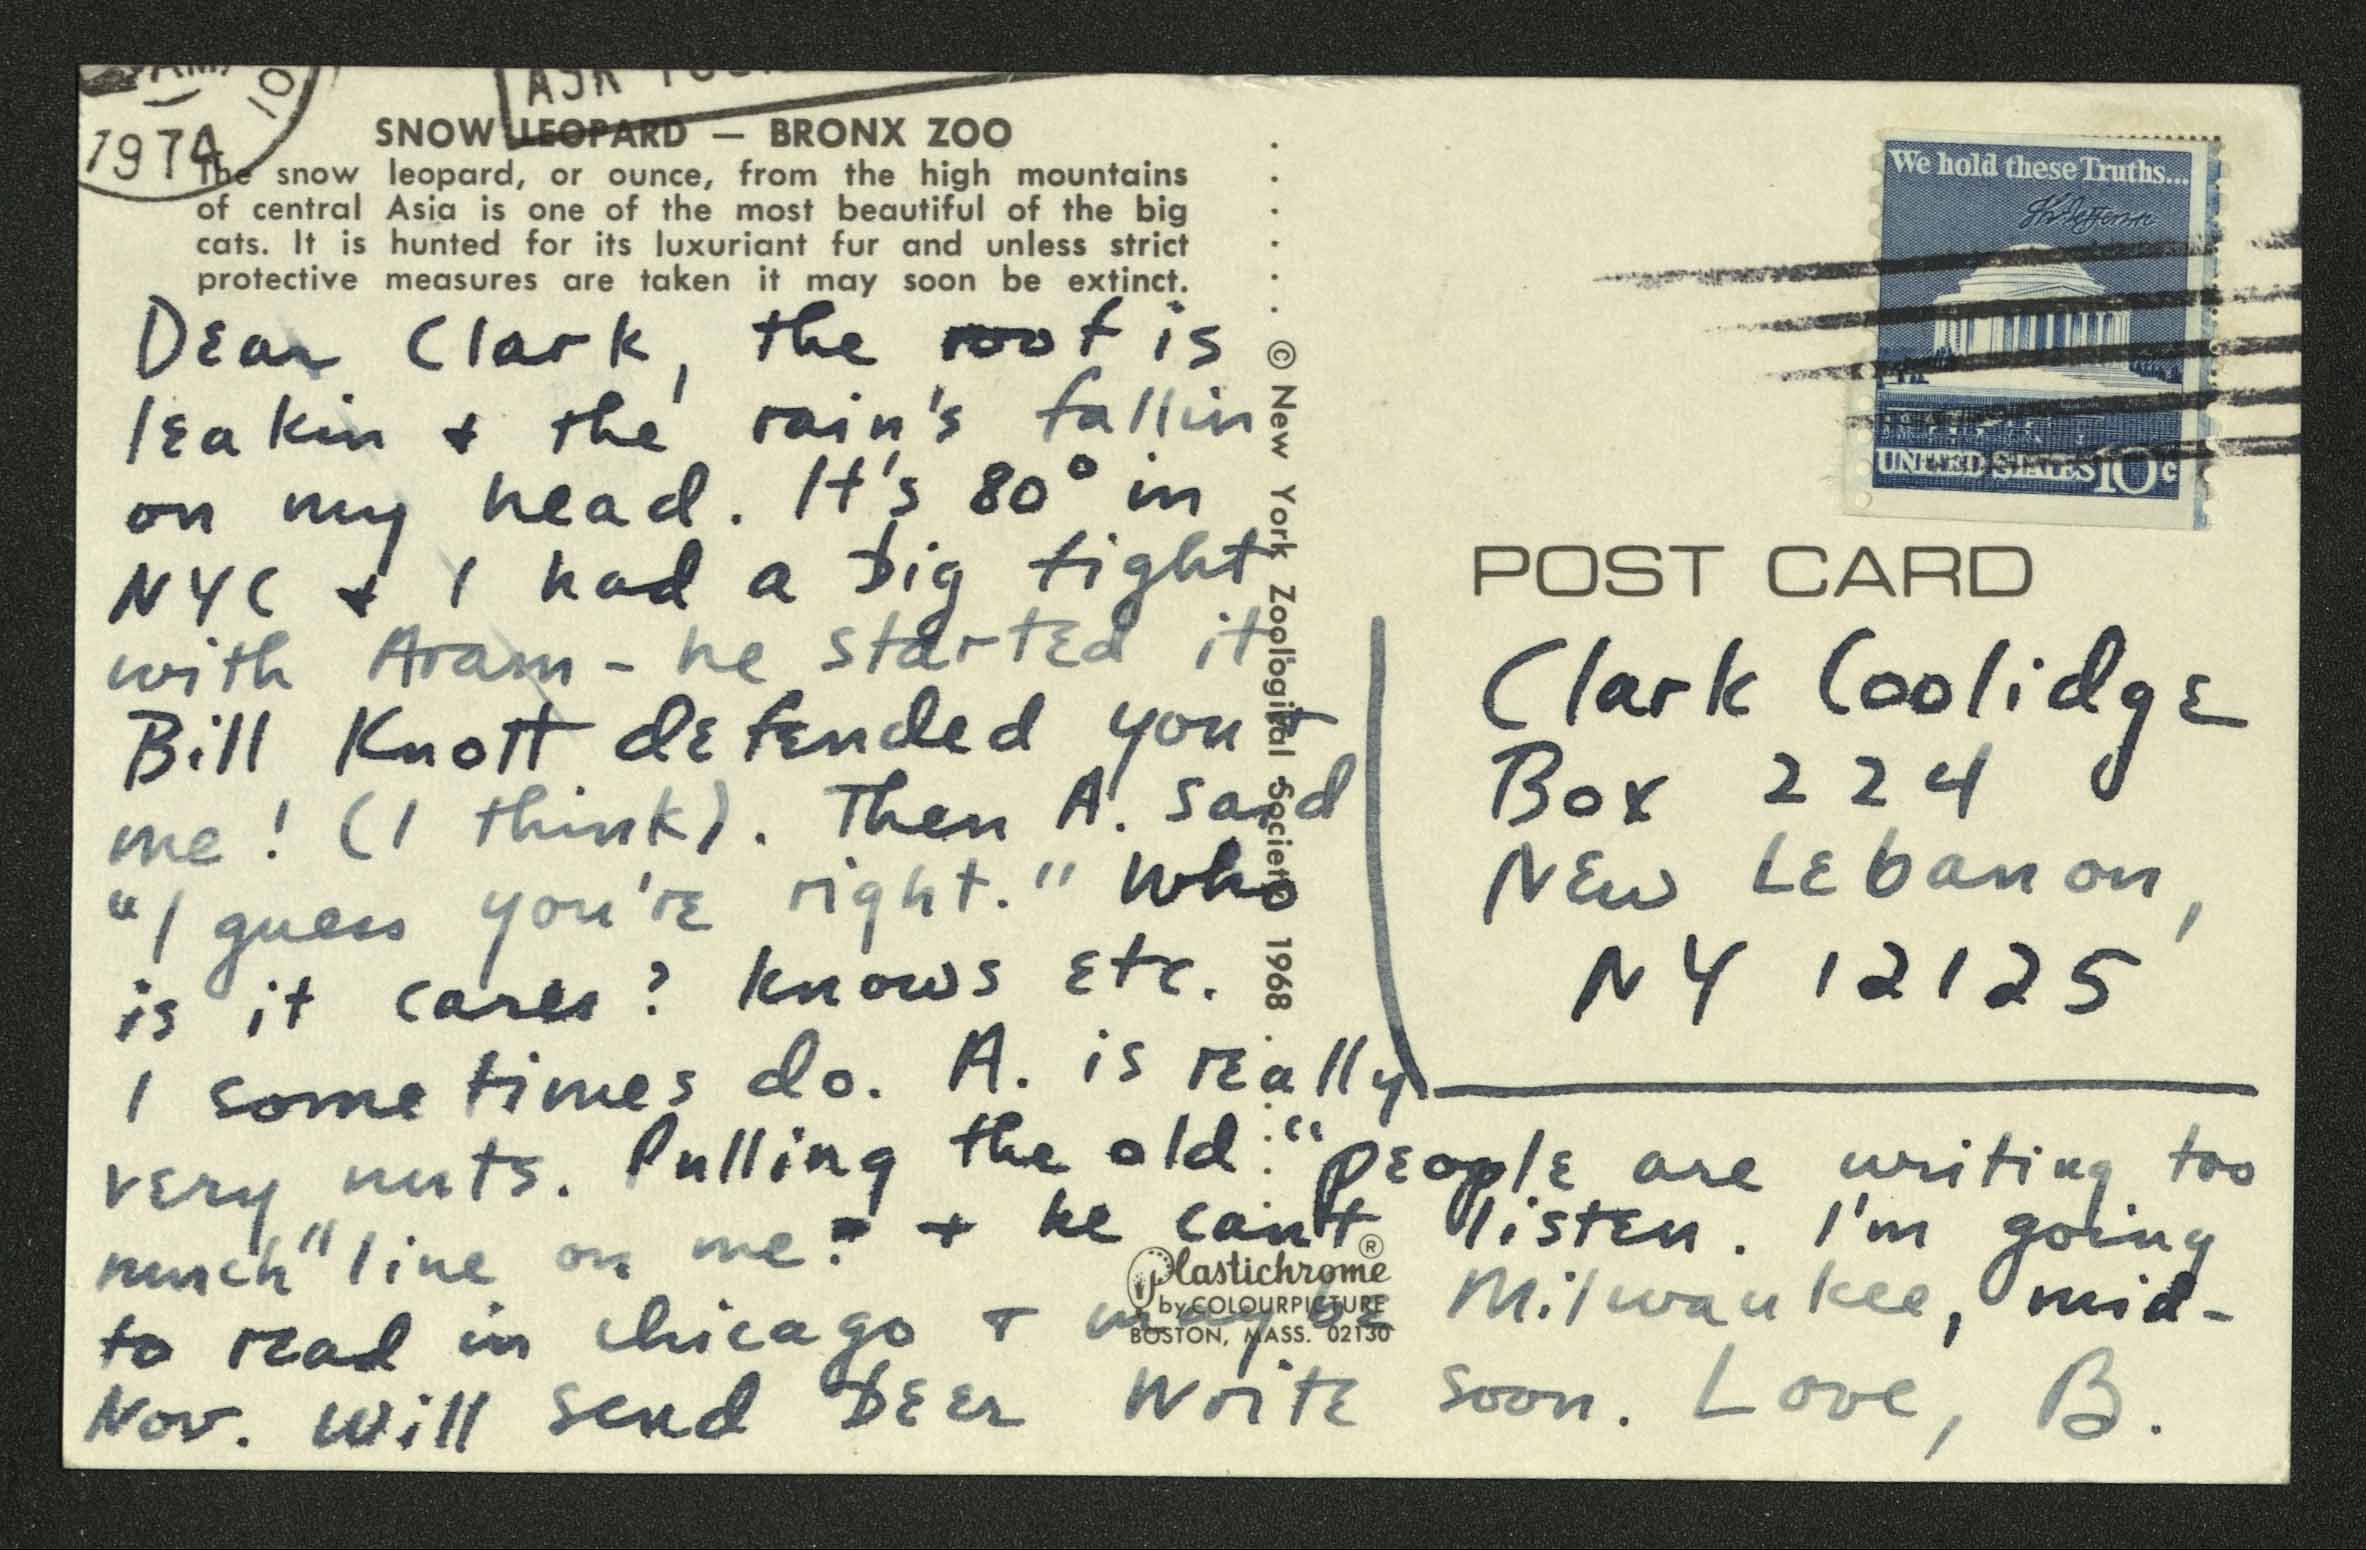 AM
10
1974
ASK
SNOW LEOPARD — BRONX ZOO
The snow leopard, or ounce, from the high mountains
of central Asia is one of the most beautiful of the big
cats. It is hunted for its luxuriant fur and unless strict
protective measures are taken it may soon be extinct.
Dear Clark, the roof is
leakin + the rain's fallin
on my head. It's 80° in
NYC + I had a big fight
with Aram - he started it
Bill Knott defended you +
me! (I think). Then A. said
"I guess you're right." Who
is it cares? Knows etc.
I sometimes do. A. is really
very nuts. Pulling the old "people are writing too
much" line on me. + he can't listen. I'm going
to read in Chicago + maybe Milwaukee, mid-
Nov. Will send Deer Write soon. Love, B.
© New York Zoological Society 1968
Plastichrome®
by COLOURPICTURE
BOSTON, MASS. 02130
We hold these Truths...
Th Jefferson
UNITED STATES 10c
POST CARD
Clark Coolidge
Box 224
New Lebanon,
NY 12125